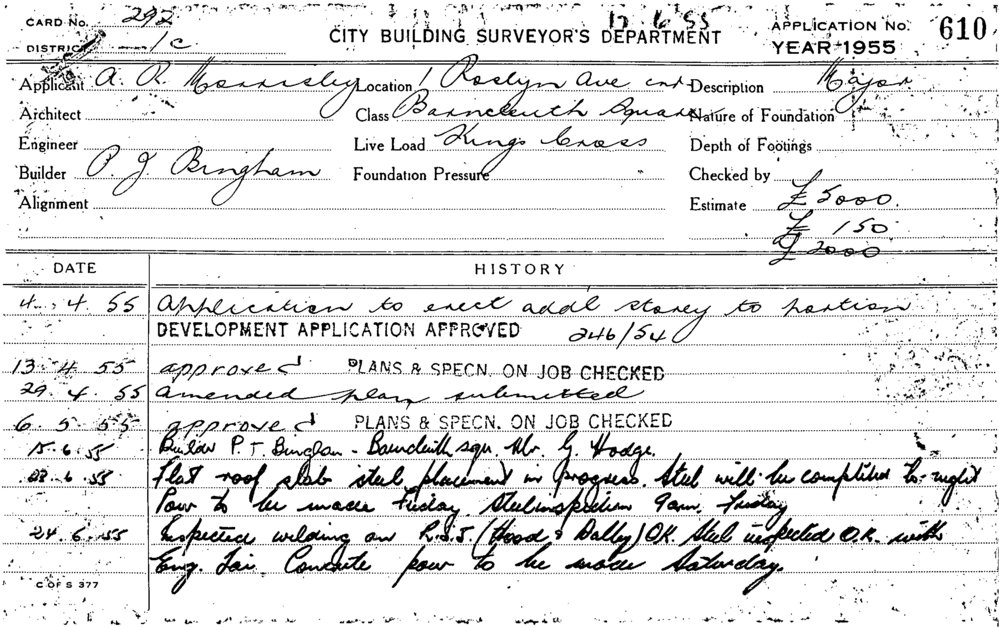 CARD No. 292
12 6 55
CITY BUILDING SURVEYOR'S DEPARTMENT
APPLICATION No. 610
YEAR 1955
DISTRICT 1c
Applicant A. R. Location 1 Roslyn Ave cnr Description Major
Architect Class Barncleuth Square Nature of Foundation
Engineer Live Load Kings Cross Depth of Footings
Builder P. J. Bingham Foundation Pressure Checked by
Alignment Estimate £5000.
£ 150
£ 2000
DATE HISTORY
4. 4. 55 Application to erect addl storey to portion
DEVELOPMENT APPLICATION APPROVED 246/54
13 4 55 approved PLANS & SPECN. ON JOB CHECKED
29. 4. 55 amended plan submitted
6 5 55 approved PLANS & SPECN. ON JOB CHECKED
15.6.55 Builder P. - Barncleuth sqr. Mr. G. Hodge.
6.55 Flat roof slab steel placement in progress. Steel will be completed to-night
Pour to be made Friday. Steel inspection 9am. Friday
24.6.55 Inspected welding on R.S.J. (Hood & Dalley) O.K. Steel inspected O.K. with
Eng. Concrete pour to be made Saturday.
C OF S 377